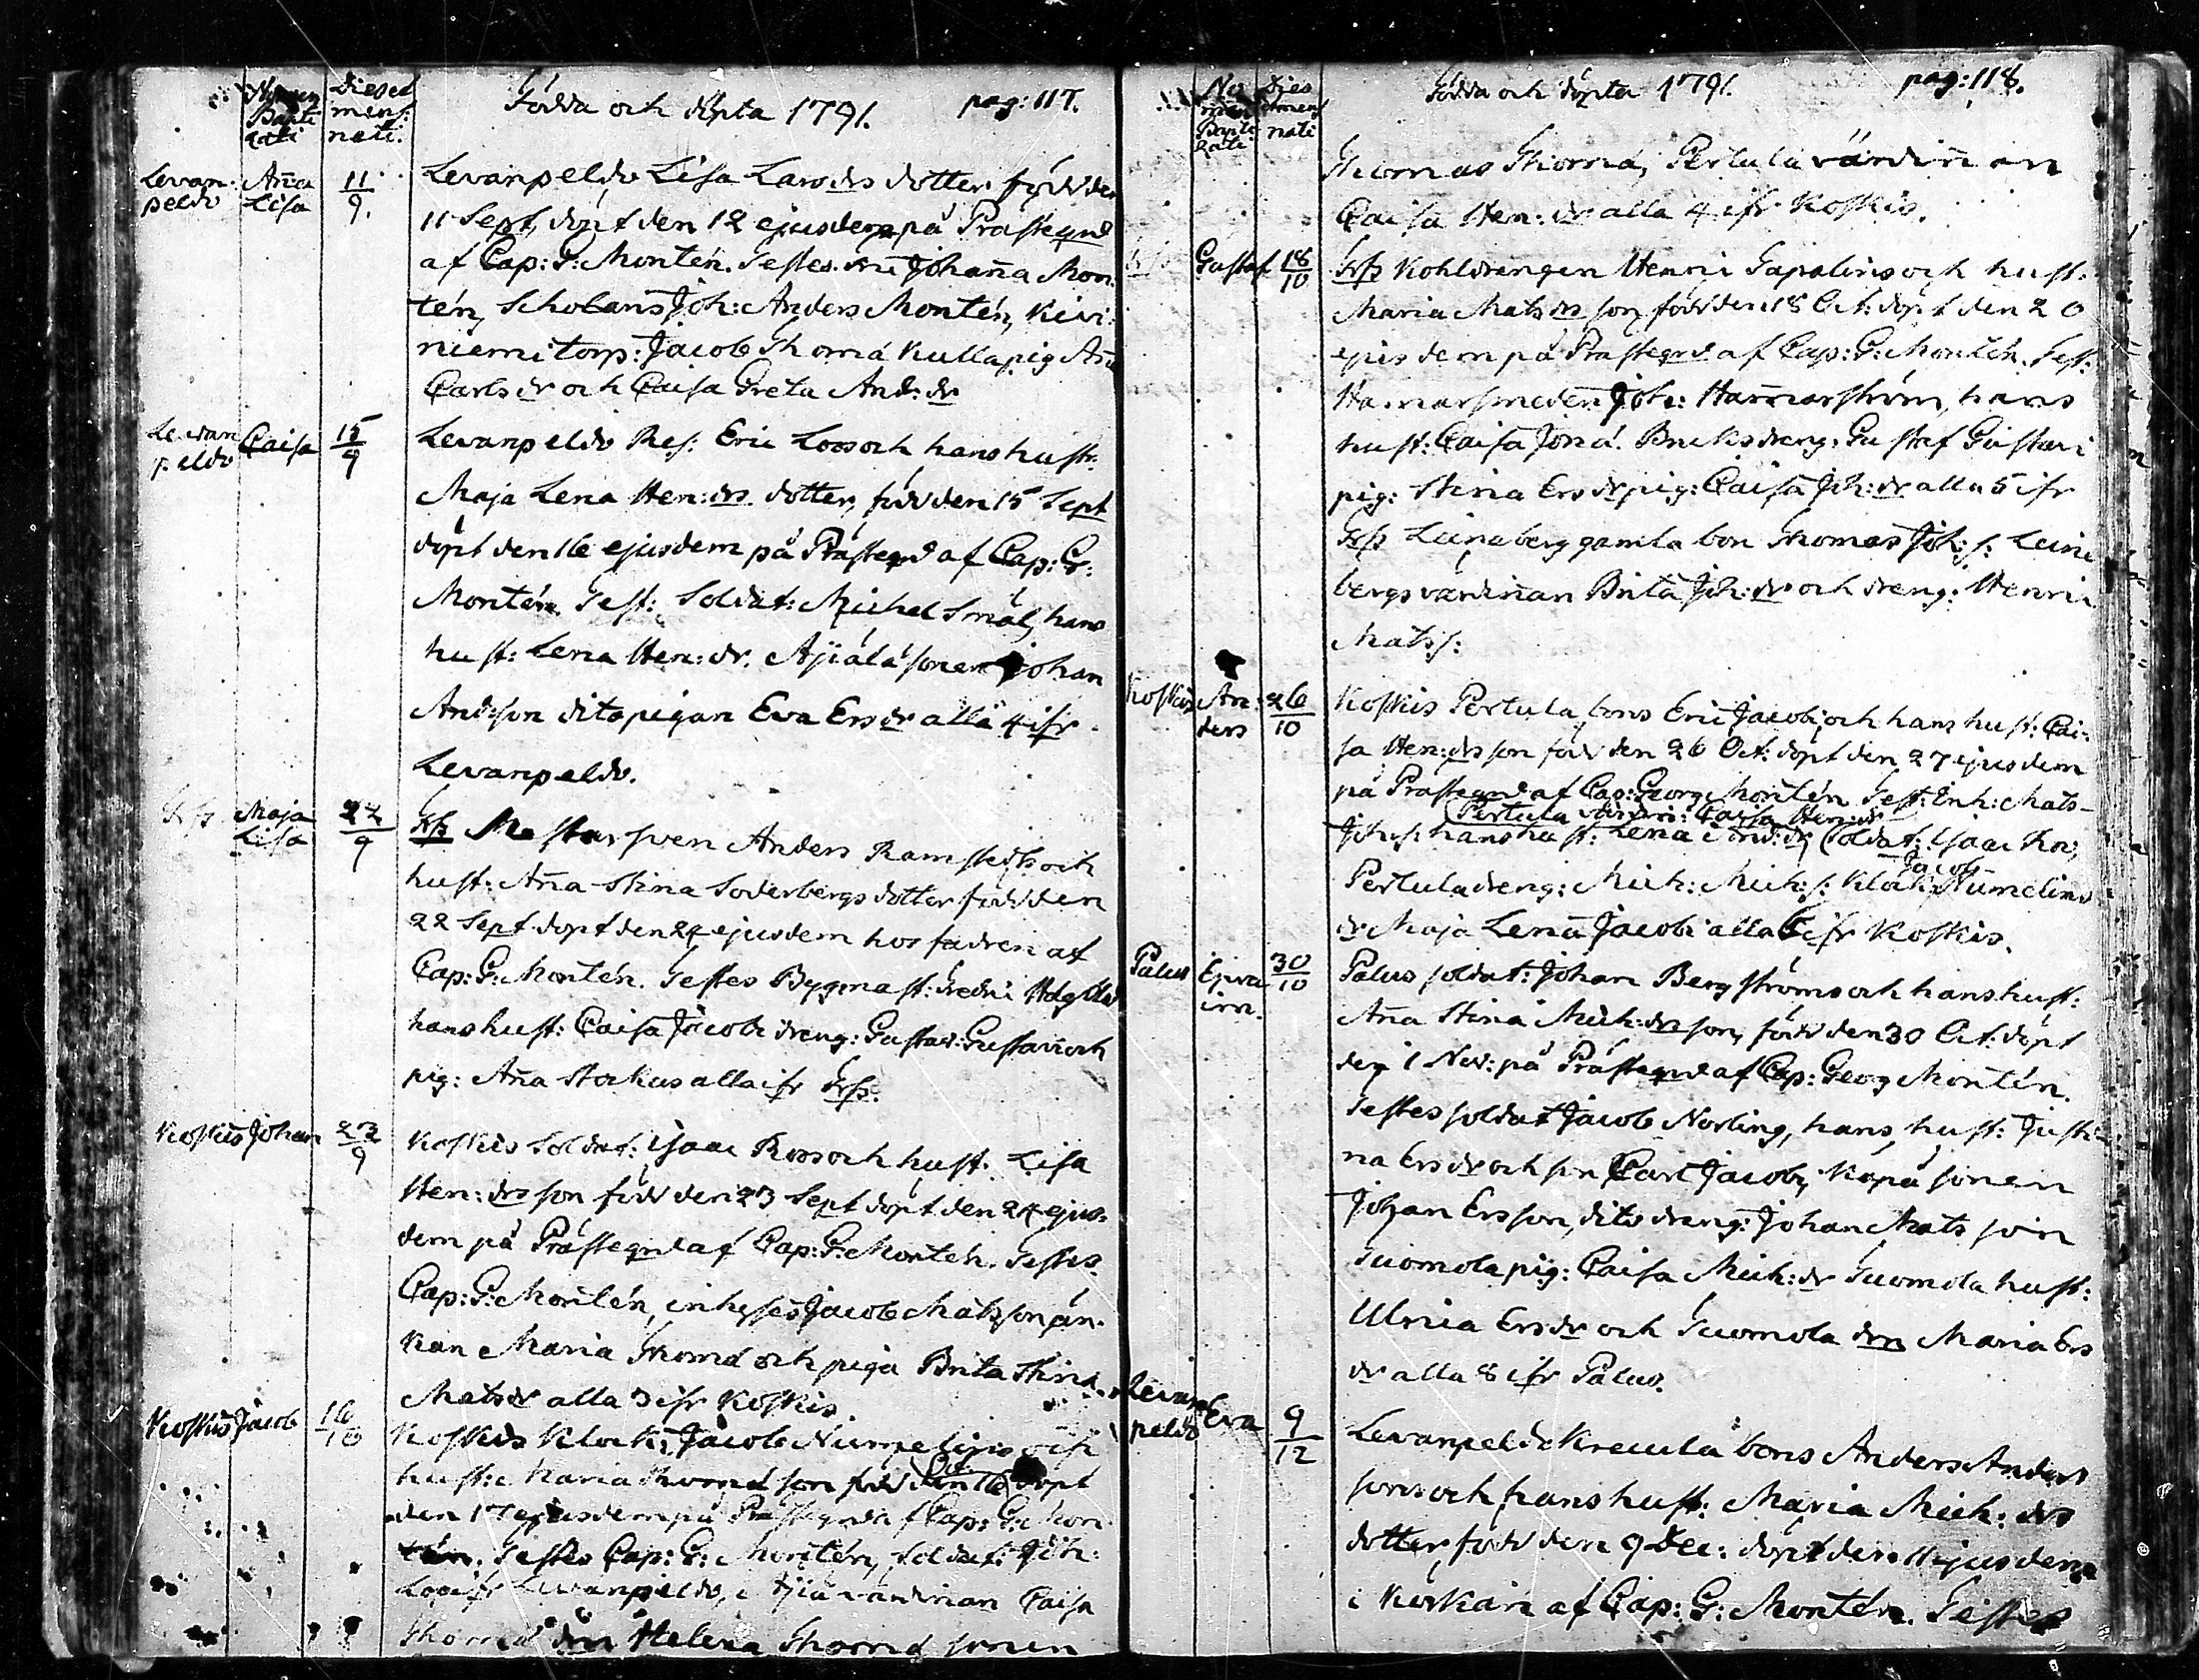 Nomen Bapti zati
Dies et mens: nati.
Födda och döpta 1791.
pag: 117.
Levan peldo
Aña Lisa
11/9.
Levanpeldo Lisa Lars drs dotter född den
11 Sept, döpt den 12 ejusdem på Prästegrd
af Cap: G: Montén. Testes. Johaña Mon
tén, Scholaris Joh: Anders Montén, Kivi
niemi torp: Jacob Thomá Kulla pig Aña
Carls dr och Caisa Greta And: dr
Levan peldo
Caisa
15/9
Levanpeldo Res: Eric Loos och hans hustr:
Maja Lena Hen: drs dotter, född den 15 Sept
döpt den 16 ejusdem på Prästegrd af Cap: G:
Montén. Test: Soldat: Michel Smål, hans
hust: Lena Hen: dr. Äjälä sonen Johan
Andson dito pigan Eva Ers dr alla 4 ifr
Levanpeldo.
Maja Lisa
22/9
Mästarsven Anders Ramstedts och
hust: Aña Stina Soderbergs dotter född den
22 Sept. döpt den 24 ejusdem hos fadren af
Cap: G: Montén. Testes Bygmast:
hans hust: Caisa Jacobi dreng: Gustav: Gustavi och
pig: Aña Storkus alla ifr
Koskis
Johan
23/9
Koskis Soldat: Isaac Roos och hust: Lisa
Hen: drs son född den 23 Sept döpt den 24 ejus-
dem på Prästegrd af Cap: G: Montén. Testes
Cap: G: Montén, inhyses Jacob Matsson än-
kan Maria Thomá och piga Brita Stina
Mats dr alla 3 ifr Koskis.
Koskis
Jacob
16/10
Koskis Klock: Jacob Numelins och
hust: Maria Thomá son född den 16 Oct. döpt
den 17 ejusdem på Prästegrd af Cap: G: Mon
tén. Testes Cap: G: Montén, Soldat: Joh:
Loo ifr Levanpeldo, Äjlä värdinan Caisa
Thomá Helena Thomá sonen
No men Bapti zati
Dies et mens nati
Födda och döpta 1791.
pag: 118.
Thomas Thomá, Pertula värdiñan
Caisa Hen: dr alla 4 ifr Koskis.
Gustaf
18/10
Kohldrengen Henric Tapolins och hust:
Maria Mats drs son, född den 18 Oct: döpt den 20
ejusdem på Prästegrd af Cap: G: Montén. Test:
Hamarsmeden Joh: Hamarström, hans
hust: Caisa Joná. Bruksdreng: Gustaf Gustavi
pig: Stina Ers dr pig: Caisa Joh: dr alla 5 ifr
Leineberg gamla bon Thomas Joh: s: Leine
bergs värdiñan Brita Joh: dr och dreng: Henric
Mats s:
Koskis
An ders
26/10
Koskis Pertula bons Eric Jacobi, och hans hust: Cai-
sa Hen: drs son född den 26 Oct: döpt den 27 ejusdem
på Prästegrd af Cap: Georg Montén Test: Inh: Mats
Pertula värdin: Caisa Hen: dr
Joh: s: hans hust: Lena And: dr, Soldat: Isaac Roos,
Jacob
Pertula dreng: Mich: Mich: s: Klock: Numelins
dr Maja Lena Jacobi alla 6 ifr Koskis.
Palus
Epra im.
30/10
Palus soldat: Johan Bergströms och hans hust:
Aña Stina Mich: drs son, född den 30 Oct: döpt
den 1 Nov: på Prästegrd af Cap: Georg Montén.
Testes soldat Jacob Norling, hans hust: Justi
na Ers dr och son Carl Jacobi, Kapa sonen
Johan Ersson, dito dreng: Johan Mats son
Tuomola pig: Caisa Mich: dr Tuomola hust:
Ulrica Ers dr och Tuomola drn Maria Ers
dr alla 8 ifr Palus.
Levan peldo
Eva
9/12
Levanpeldo Kreula bons Anders Anders
sons och hans hust: Maria Mich: drs
dotter, född den 9 Dec: döpt den 11 ejusdem
i Kyrkan af Cap: G: Montén. Testes